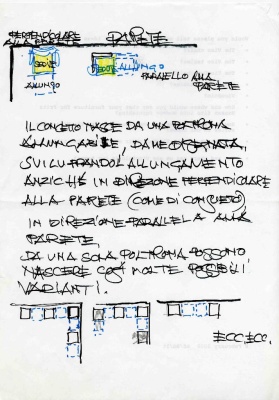 PERPENDICOLARE
ALLA PARETE
PARETE
SEDUTA
SEDUTA ALLUNGO
ALLUNGO
PARALLELO ALLA
PARETE
IL CONCETTO NASCE DA UNA POLTRONA
ALLUNGABILE, DA ME DISEGNATA,
SVILUPPANDO L'ALLUNGAMENTO
ANZICHÉ IN DIREZIONE PERPENDICOLARE
ALLA PARETE (COME DI CONSUETO)
IN DIREZIONE PARALLELA ALLA
PARETE.
DA UNA SOLA POLTRONA POSSONO
NASCERE COSÌ MOLTE POSSIBILI
VARIANTI.
ECC. ECC.